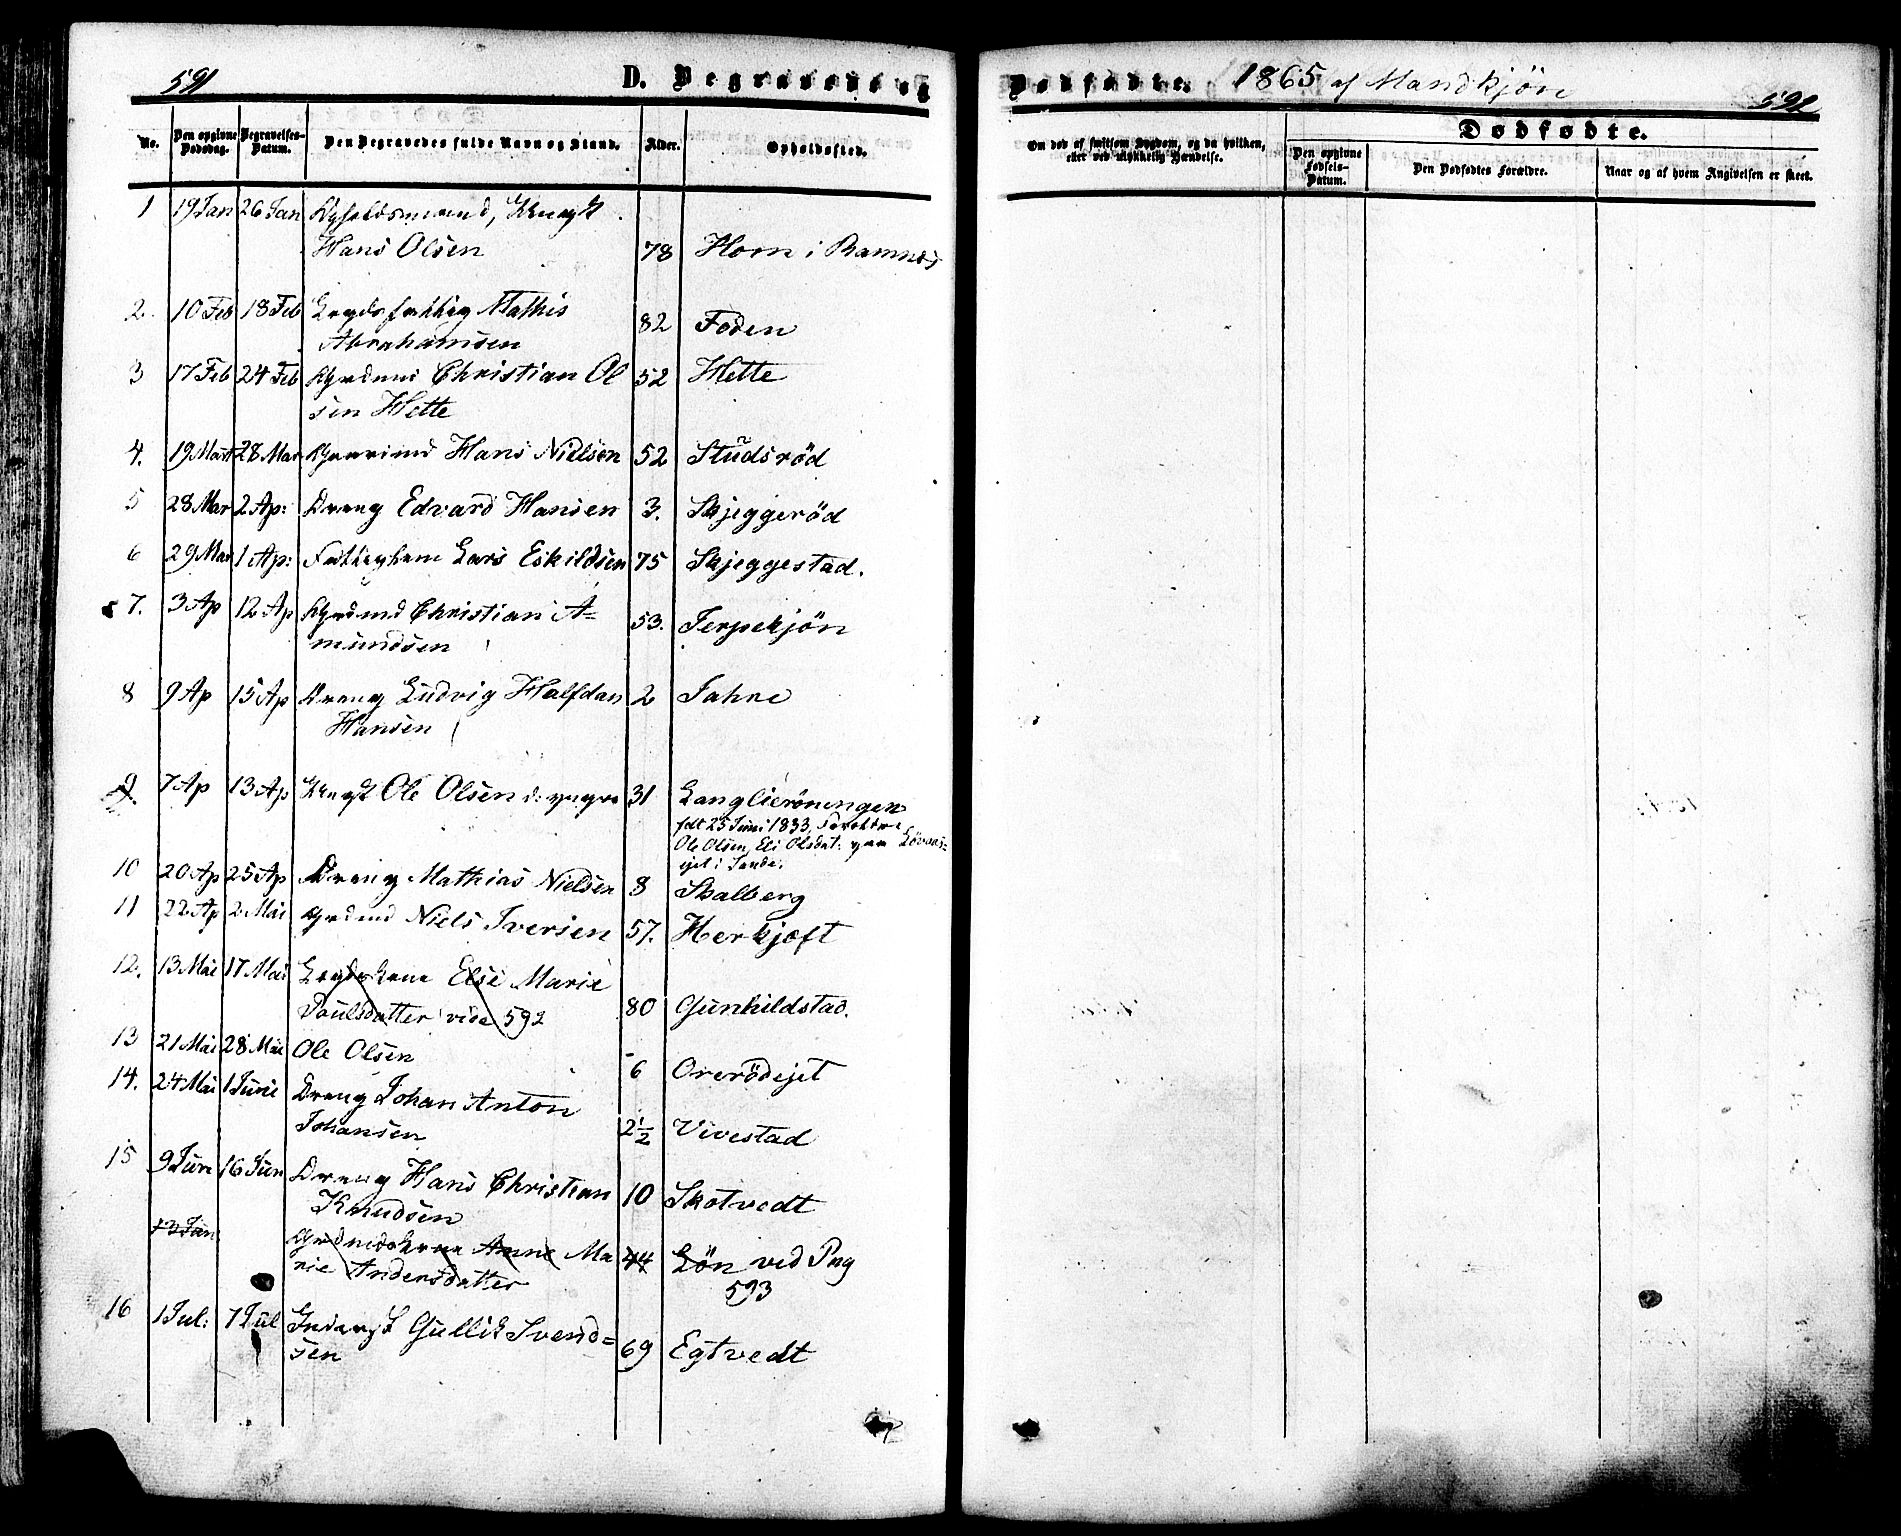 591
D. Begravede og
No.
Den opgivne Dødsdag.
Begravelses-Datum.
Den Begravedes fulde Navn og Stand.
Alder.
Opholdssted.
1 19 Jan 26 Jan
Hans Olsen 78 Horn i Ramnes
2. 10 Feb 18 Feb Lægdsfattig Mathis
Abrahamsen 82 Foden
3 17 Feb 24 Feb Christian Ol 52 Hette
sen Hette
4. 19 Mart 28 Mar Hans Nielsen 52 Studsrød
5 28 Mar 2 Ap: Dreng Edvard Hansen 3. Skjeggerød
6 29 Mar 1 Ap: Lars Eskildsen 75 Skjeggestad.
7. 3 Ap 12 Ap Christian A=
mundsen 53. Jerpekjøn
8 9 Ap 15 Ap Dreng Ludvig Halfdan 2 Jahre
Hansen
9. 7 Ap 13 Ap Ole Olsen d. yngre 31 Langlierøningen
født 25 Juni 1833, Forældre
Ole Olsen, Eli Olsdat:
ejet i Sande.
10 20 Ap 25 Ap Dreng Mathias Nielsen 8 Skalberg
11 22 Ap 2 Mai Niels Iversen 57. Herkjøft
12. 13 Mai 17 Mai Lægdskone Else Marie
Poulsdatter vide 592 80 Gunhildstad.
13 21 Mai 28 Mai Ole Olsen 6 Orerødejet
14. 24 Mai 1 Juni Dreng Johan Anton
Johansen 2½ Vivestad
15 9 Juni 16 Jun Dreng Hans Christian 10 Skotvedt
Knudsen
13 Jan Anne Ma 44 Løn ved Pag
rie Andersdatter 593
16 1 Jul: 7 Jul Gullik Svend=
sen 69 Egtvedt
Dødfødte. 1865 af Mandkjøn
592
Om død af smitsom Sygdom, og da hvilken,
eller ved ulykkelig Hændelse.
Dødfødte.
Den opgivne Fødsels-Datum.
Den Dødfødtes Forældre.
Naar og af hvem Angivelsen er skeet.